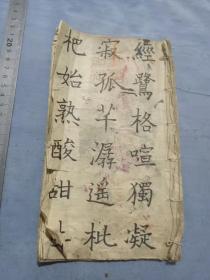 經鷺格喧獨凝
寂孤芊潺遥枇
杷始熟酸甜